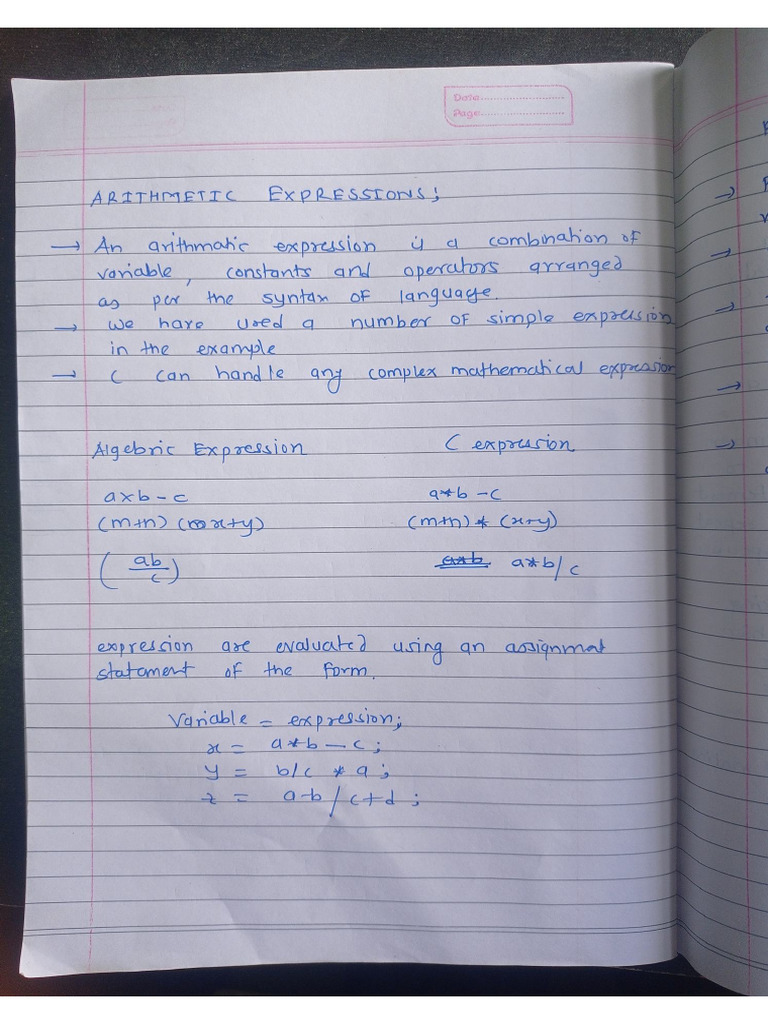 Date.........................
Page.........................
ARITHMETIC EXPRESSIONS;
→ An arithmatic expression is a combination of
variable, constants and operators arranged
as per the syntax of language.
→ we have used a number of simple expression
in the example
→ C can handle any complex mathematical expression
Algebric Expression C expression
axb-c a*b-c
(m+n) (x+y) (m+n)*(x+y)
(ab/c) a*b/c
expression are evaluated using an assignmat
statament of the form.
Variable = expression;
x = a*b-c;
y = b/c * a;
z = a-b/c+d;